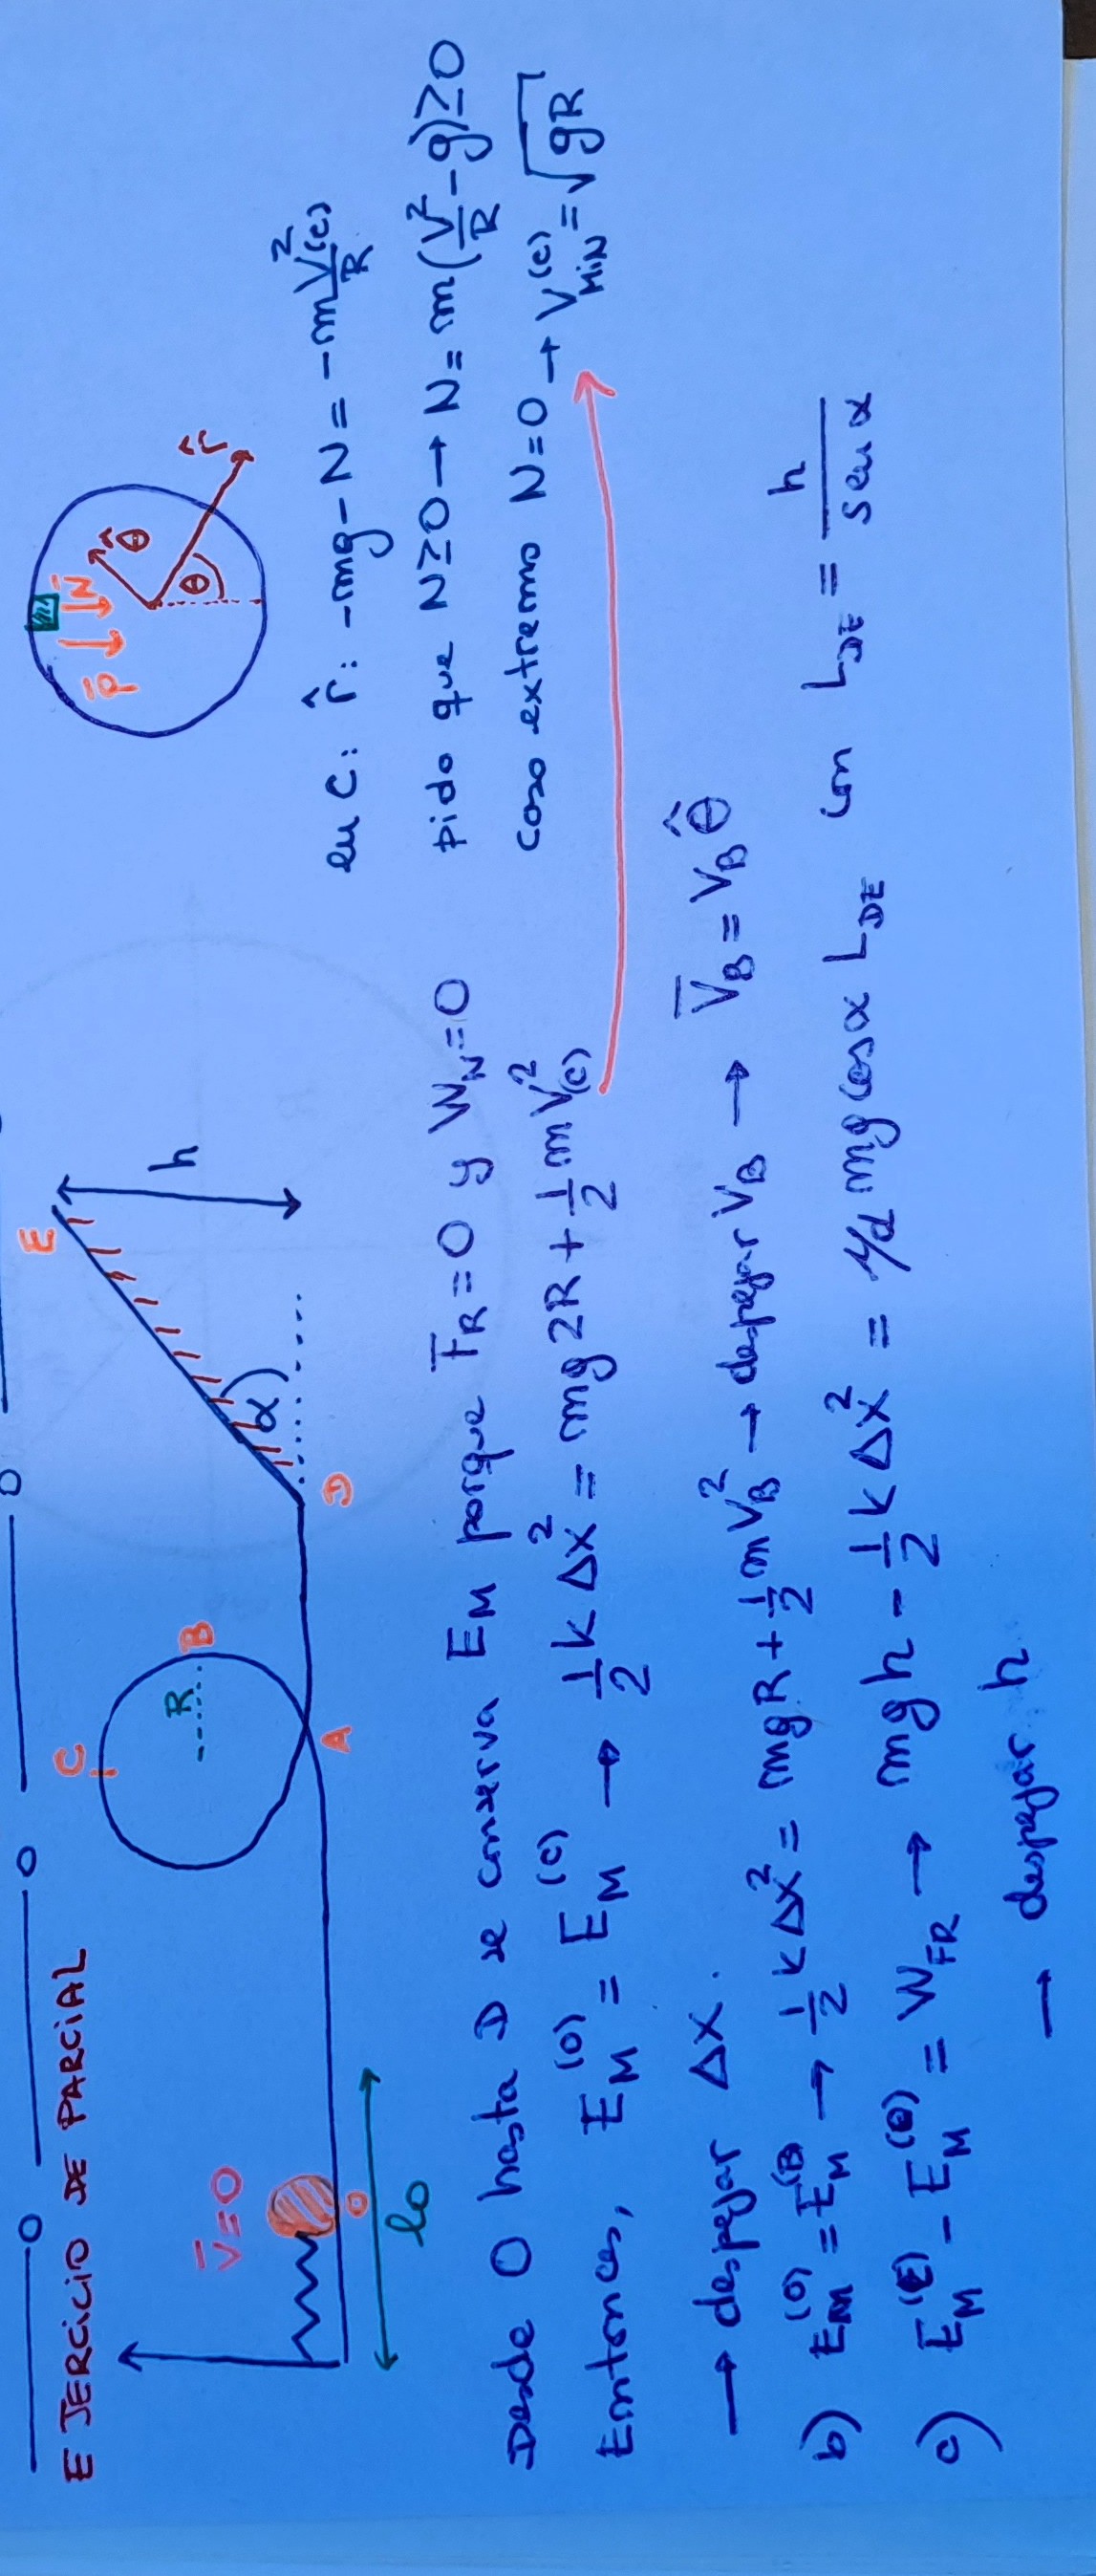 EJERCICIO DE PARCIAL
C
E
V̄=0
R
B
h
α
O
A
D
l₀
P̄ N̄
θ̂
θ
r̂
en C: r̂: -mg-N = -m V²(c)/R
pido que N≥0 → N = m(V²/R - g)≥0
caso extremo N=0 → V_MIN^(c) = √gR
Desde O hasta D se conserva E_M porque F̄_R=0 y W_N=0
Entonces, E_M^(0) = E_M^(c) → 1/2 k Δx² = mg2R + 1/2 m V²(c)
→ despejar Δx.
b) E_M^(0) = E_M^(B) → 1/2 k Δx² = mgR + 1/2 m V_B² → despejar V_B → V̄_B = V_B θ̂
c) E_M^(E) - E_M^(0) = W_FR → mgh - 1/2 k Δx² = μd mg cosα L_DE con L_DE = h/sen α
→ despejar h